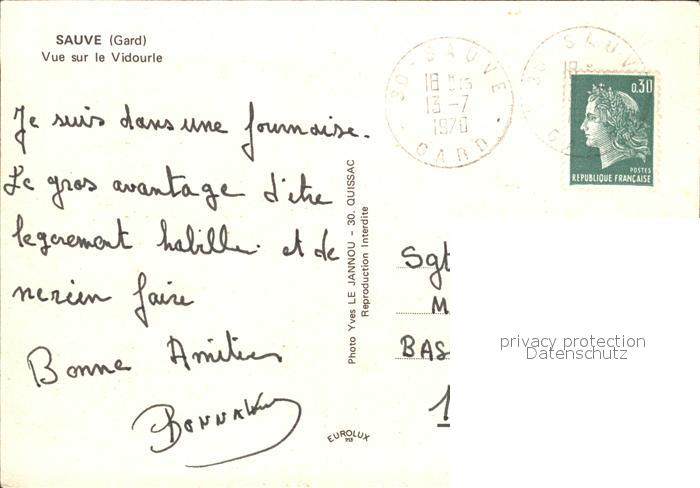 SAUVE (Gard)
Vue sur le Vidourle
30 - SAUVE
18 H 15
13 - 7
1970
GARD
30 - SAUVE
18
0,30
POSTES
REPUBLIQUE FRANÇAISE
Je suis dans une fournaise.
Le gros avantage d'être
legerement habiller et de
ne rien faire
Bonne Amities
Photo Yves LE JANNOU - 30. QUISSAC
Reproduction Interdite
Sgt
M
BAS
1
EUROLUX
privacy protection
Datenschutz